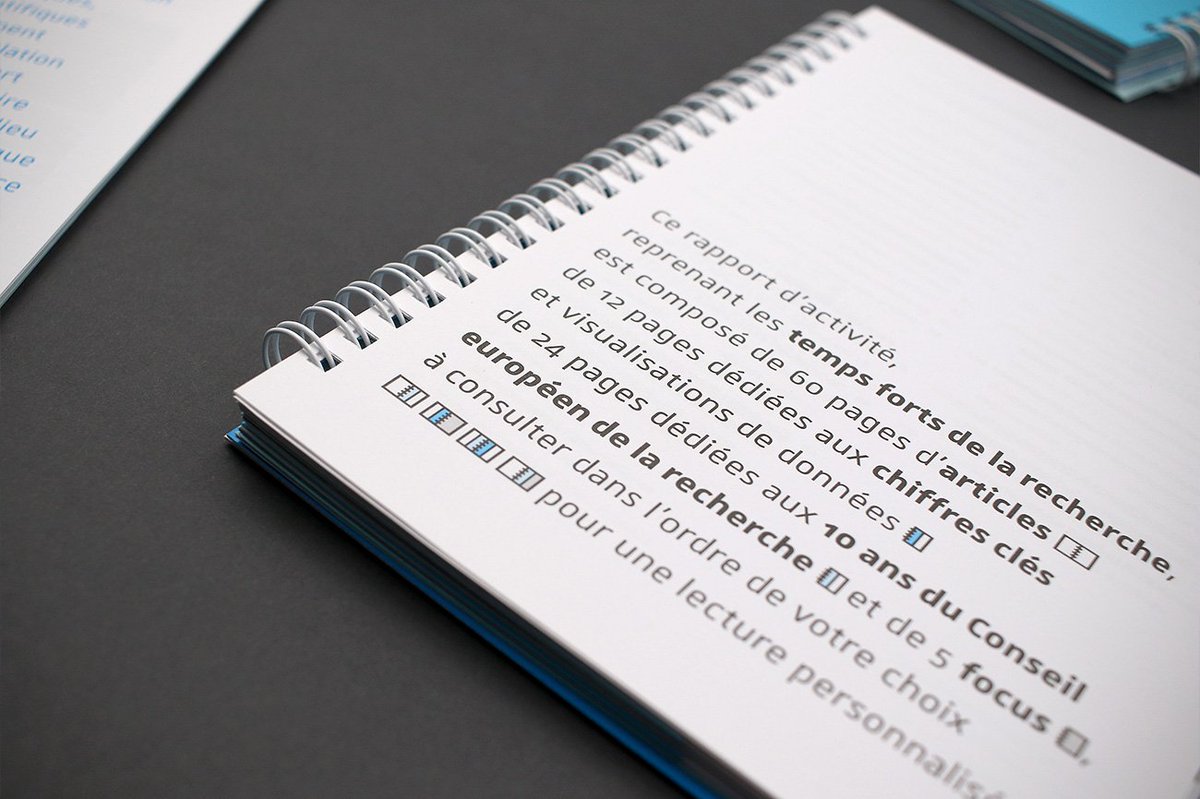 Ce rapport d'activité,
reprenant les temps forts de la recherche,
est composé de 60 pages d'articles
de 12 pages dédiées aux chiffres clés
et visualisations de données
de 24 pages dédiées aux 10 ans du Conseil
européen de la recherche et de 5 focus ,
à consulter dans l'ordre de votre choix
pour une lecture personnalisé